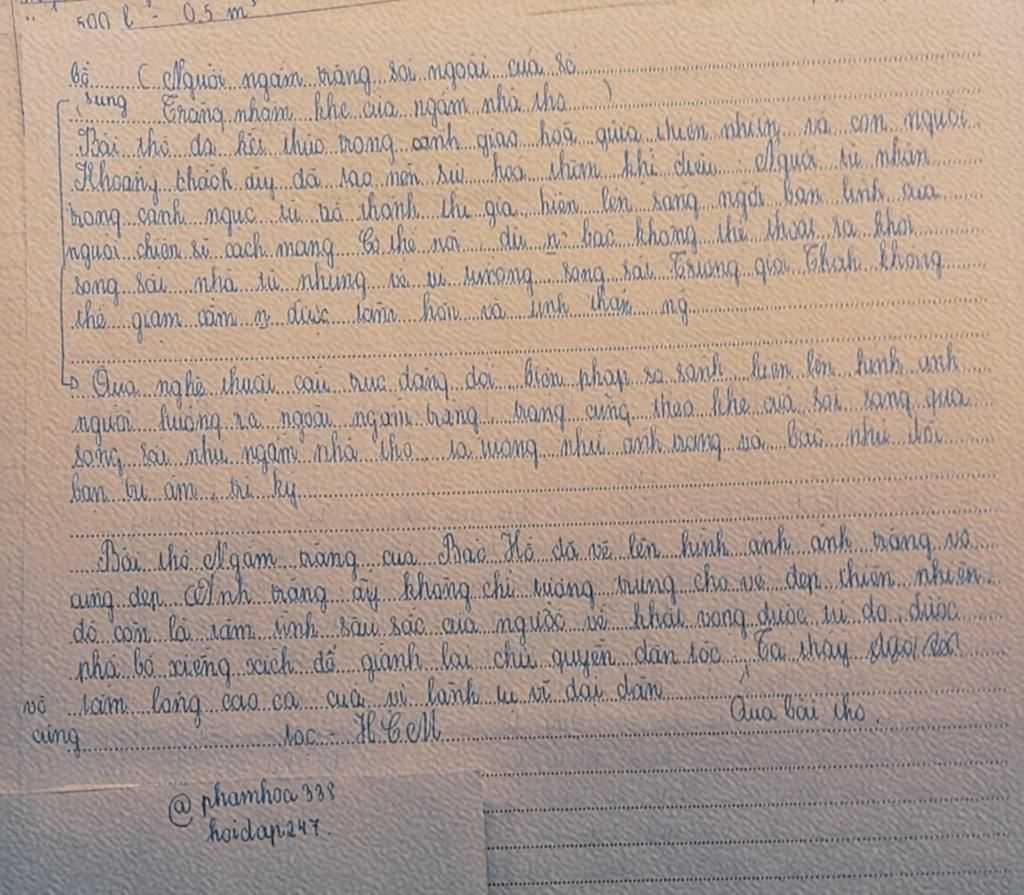 500 l = 0,5 m³
bổ ( Người ngắm trăng soi ngoài cửa sổ
sung Trăng nhòm khe cửa ngắm nhà thơ )
Bài thơ đã kết thúc trong cảnh giao hoà giữa thiên nhiên và con người.
Khoảng khách ấy đã tạo nên sự hoá thân kì diệu : Người tù nhân
trong cảnh ngục tù trở thành thi gia, hiện lên sáng ngời bản lĩnh của
người chiến sĩ cách mạng. Có thể nói, dù n bạc không thể thoát ra khỏi
song sắt nhà tù nhưng về vi tưởng song sắt Tưởng giới Thạch không
thể giam cầm n được tâm hồn và tinh thần ng
Qua nghệ thuật cấu trúc đăng đối, biện pháp so sánh, hiện lên hình ảnh
người hướng ra ngoài ngắm trăng, trăng cũng theo khe cửa soi sáng qua
song sắt như ngắm nhà thơ. ta tưởng như ánh trăng và bác như đôi
bạn tri âm, tri kỷ
Bài thơ Ngắm trăng của Bác Hồ đã vẽ lên hình ảnh ánh trăng vô
cùng đẹp. Ánh trăng ấy không chỉ tượng trưng cho vẻ đẹp thiên nhiên
đó còn là tâm tình sâu sắc của người về khát vọng được tự do, được
phá bỏ xiềng xích để giành lại chủ quyền dân tộc. Ta thấy
vô tấm lòng cao cả của vị lãnh tụ vĩ đại dân
cùng tộc - HCM Qua bài thơ,
@ phamhoa338
hoidap247.